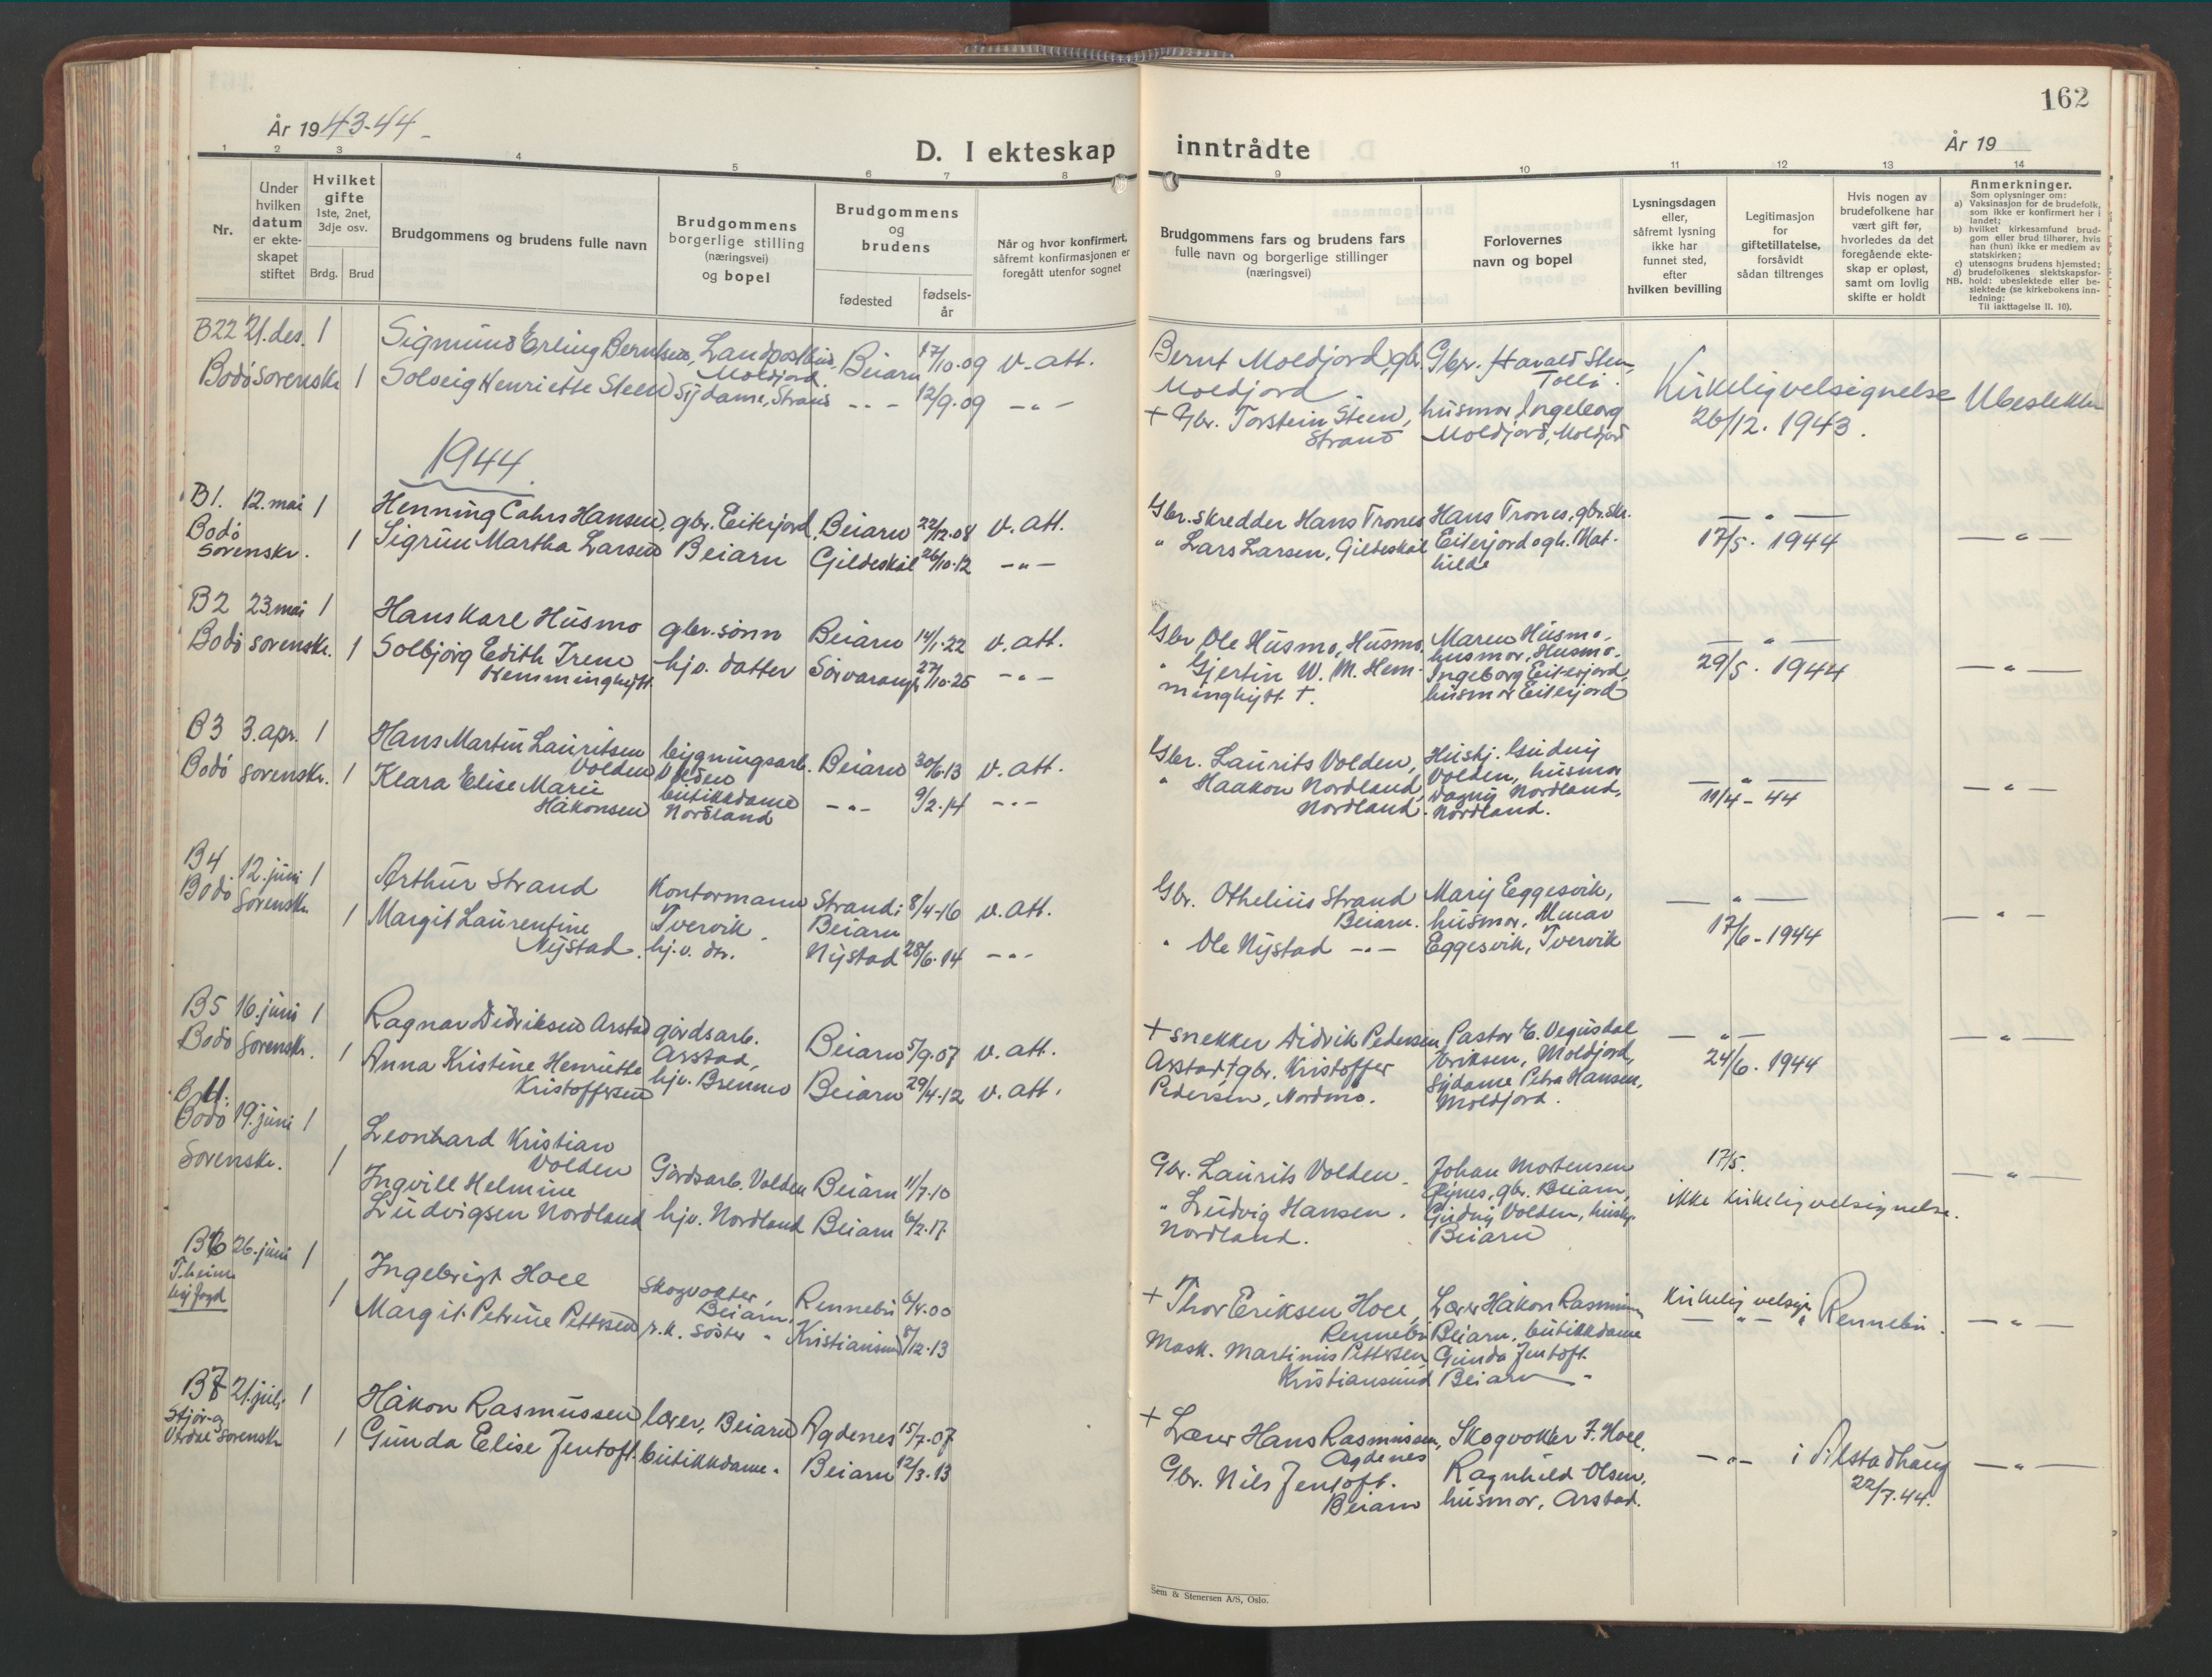 År 1943-44
D. I ekteskap
1 2 3 4 5 6 7 8
Nr.
Under hvilken datum er ekteskapet stiftet
Hvilket gifte
1ste, 2net, 3dje osv.
Brdg. Brud
Brudgommens og brudens fulle navn
Brudgommens borgerlige stilling (næringsvei) og bopel
Brudgommens og brudens
fødested
fødsels-år
Når og hvor konfirmert, såfremt konfirmasjonen er foregått utenfor sognet
B22 21.des. 1 Sigmund Erling Berntsen, Landpostbud, Moldjord. Beiarn 17/10.09 v. att.
Bodö sorenskr. 1 Solveig Henriette Steen Sydame, Strand -"- 12/9.09 -"-
1944
B1. 12. mai 1 Henning Cahrs Hansen, gbr. Eiterjord, Beiarn 22/12.08 v. att.
Bodö sorenskr. 1 Sigrun Martha Larsen Beiarn Gildeskål 26/10.12 -"-
B2 23 mai 1 Hans Kare Husmo gbr. sönn Beiarn 14/1.22 v. att.
Bodö sorenskr. 1 Solbjörg Edith Irene Hemminghytt. hjv. datter Sörvaranger 27/10.25 -"-
B3 3. apr. 1 Hans Martin Lauritsen Volden bygningsarb. Volden Beiarn 30/6.13 v. att.
Bodö sorenskr. 1 Klara Elise Marie Håkonsen butikkdame Nordland -"- 9/2.14 -"-
B4 12. juni 1 Arthur Strand Kontormann Tvervik. Strand i Beiarn 8/4-16 v. att.
Bodö sorenskr. 1 Margit Laurentine Nystad. hj. v. dtr. Nystad 28/6.14 -"-
B5 16. juni 1 Ragnar Didriksen Arstad gårdsarb. Arstad, Beiarn 5/9.07 v. att.
Bodö Sorenskr. 1 Anna Kristine Henriette Kristoffersen hjv. Brenmo Beiarn 29/4.12 v. att.
B 11. Bodö 19. juni 1 Leonhard Kristian Volden Gårdsarb. Volden Beiarn 11/7.10
Sorenskr. 1 Ingvill Helmine Ludvigsen Nordland hjv. Nordland Beiarn 6/2.17.
B6 26. juni 1 Ingebrigt Hoel Skogvokter, Beiarn, Rennebu 6/4.00
T.heim byfogd 1 Margit Petrine Pettersen r.k. söster " Kristiansund 8/12.13
B7 21. juli 1 Håkon Rasmussen lærer, Beiarn Agdenes 15/7.07
Stjör- og Verdal sorenskr. 1 Gunda Elise Jentoft. butikkdame. Beiarn 12/3.13
162
inntrådte
År 19
9 10 11 12 13 14
Brudgommens fars og brudens fars fulle navn og borgerlige stillinger (næringsvei)
Forlovernes navn og bopel
Lysningsdagen eller, såfremt lysning ikke har funnet sted, efter hvilken bevilling
Legitimasjon for giftetillatelse, forsåvidt sådan tiltrenges
Hvis nogen av brudefolkene har vært gift før, hvorledes da det foregående ekteskap er opløst, samt om lovlig skifte er holdt
Anmerkninger.
Som oplysninger om:
a) Vaksinasjon for de brudefolk, som ikke er konfirmert her i landet;
b) hvilket kirkesamfund brudgom eller brud tilhører, hvis han (hun) ikke er medlem av statskirken;
c) utensogns brudens hjemsted;
d) brudefolkenes slektskapsforhold: ubeslektede eller beslektede (se kirkebokens innledning:
NB. Til iakttagelse II. 10).
Bernt Moldjord, gbr. Moldjord Gbr. Harald Steen, Tolli. Kirkelig velsignelse Ubeslektet
+ Gbr. Torstein Steen, Strand husmor Ingeborg Moldjord, Moldjord 26/12. 1943.
Gbr. skredder Hans Trones Hans Trones, gbr. skr. -"-
" Lars Larsen, Gildeskål Eiterjord og h. Mathilde 17/5. 1944 -"-
Gbr Ole Husmo, Husmo. Maren Husmo, husmor, Husmo. -"-
" Gjertin W. M. Hemminghytt †. Ingeborg Eiterjord, husmor Eiterjord 29/5. 1944 -"-
Gbr. Laurits Volden, Hushj. Gudny Volden, husmor -"-
" Haakon Nordland, Nordland. Dagny Nordland, Nordland. 11/4-44 -"-
Gbr. Othelius Strand Beiarn. Mary Eggesvik, husmor. -"-
" Ole Nystad -"- Eggesvik, Tvervik 17/6-1944 -"-
+ snekker Didrik Pedersen Arstad Pastor E. Vegusdal Eriksen, Moldjord, -"-
† gbr. Kristoffer Pedersen, Nordmo. Sydame Petra Hansen, Moldjord. 24/6. 1944 -"-
Gbr. Laurits Volden. Johan Mortensen gbr. Beiarn, 17/5. -"-
" Ludvig Hansen. Nordland. Gudny Volden, hushj. Beiarn ikke kirkelig velsignelse.
+ Thor Eriksen Hoel, Rennebu Lærer Håkon Rasmussen Beiarn. Kirkelig velsign. i Rennebu. -"-
Mask. Martinus Pettersen, Kristiansund butikkdame Gunda Jentoft. Beiarn -"-
+ Lærer Hans Rasmussen, Agdenes Skogvokter I. Hoel, -"- i Alstadhaug -"-
Gbr. Nils Jentoft. Beiarn Ragnhild Olsen, husmor, Arstad. 22/7.44.
Sem & Stenersen A/S, Oslo.